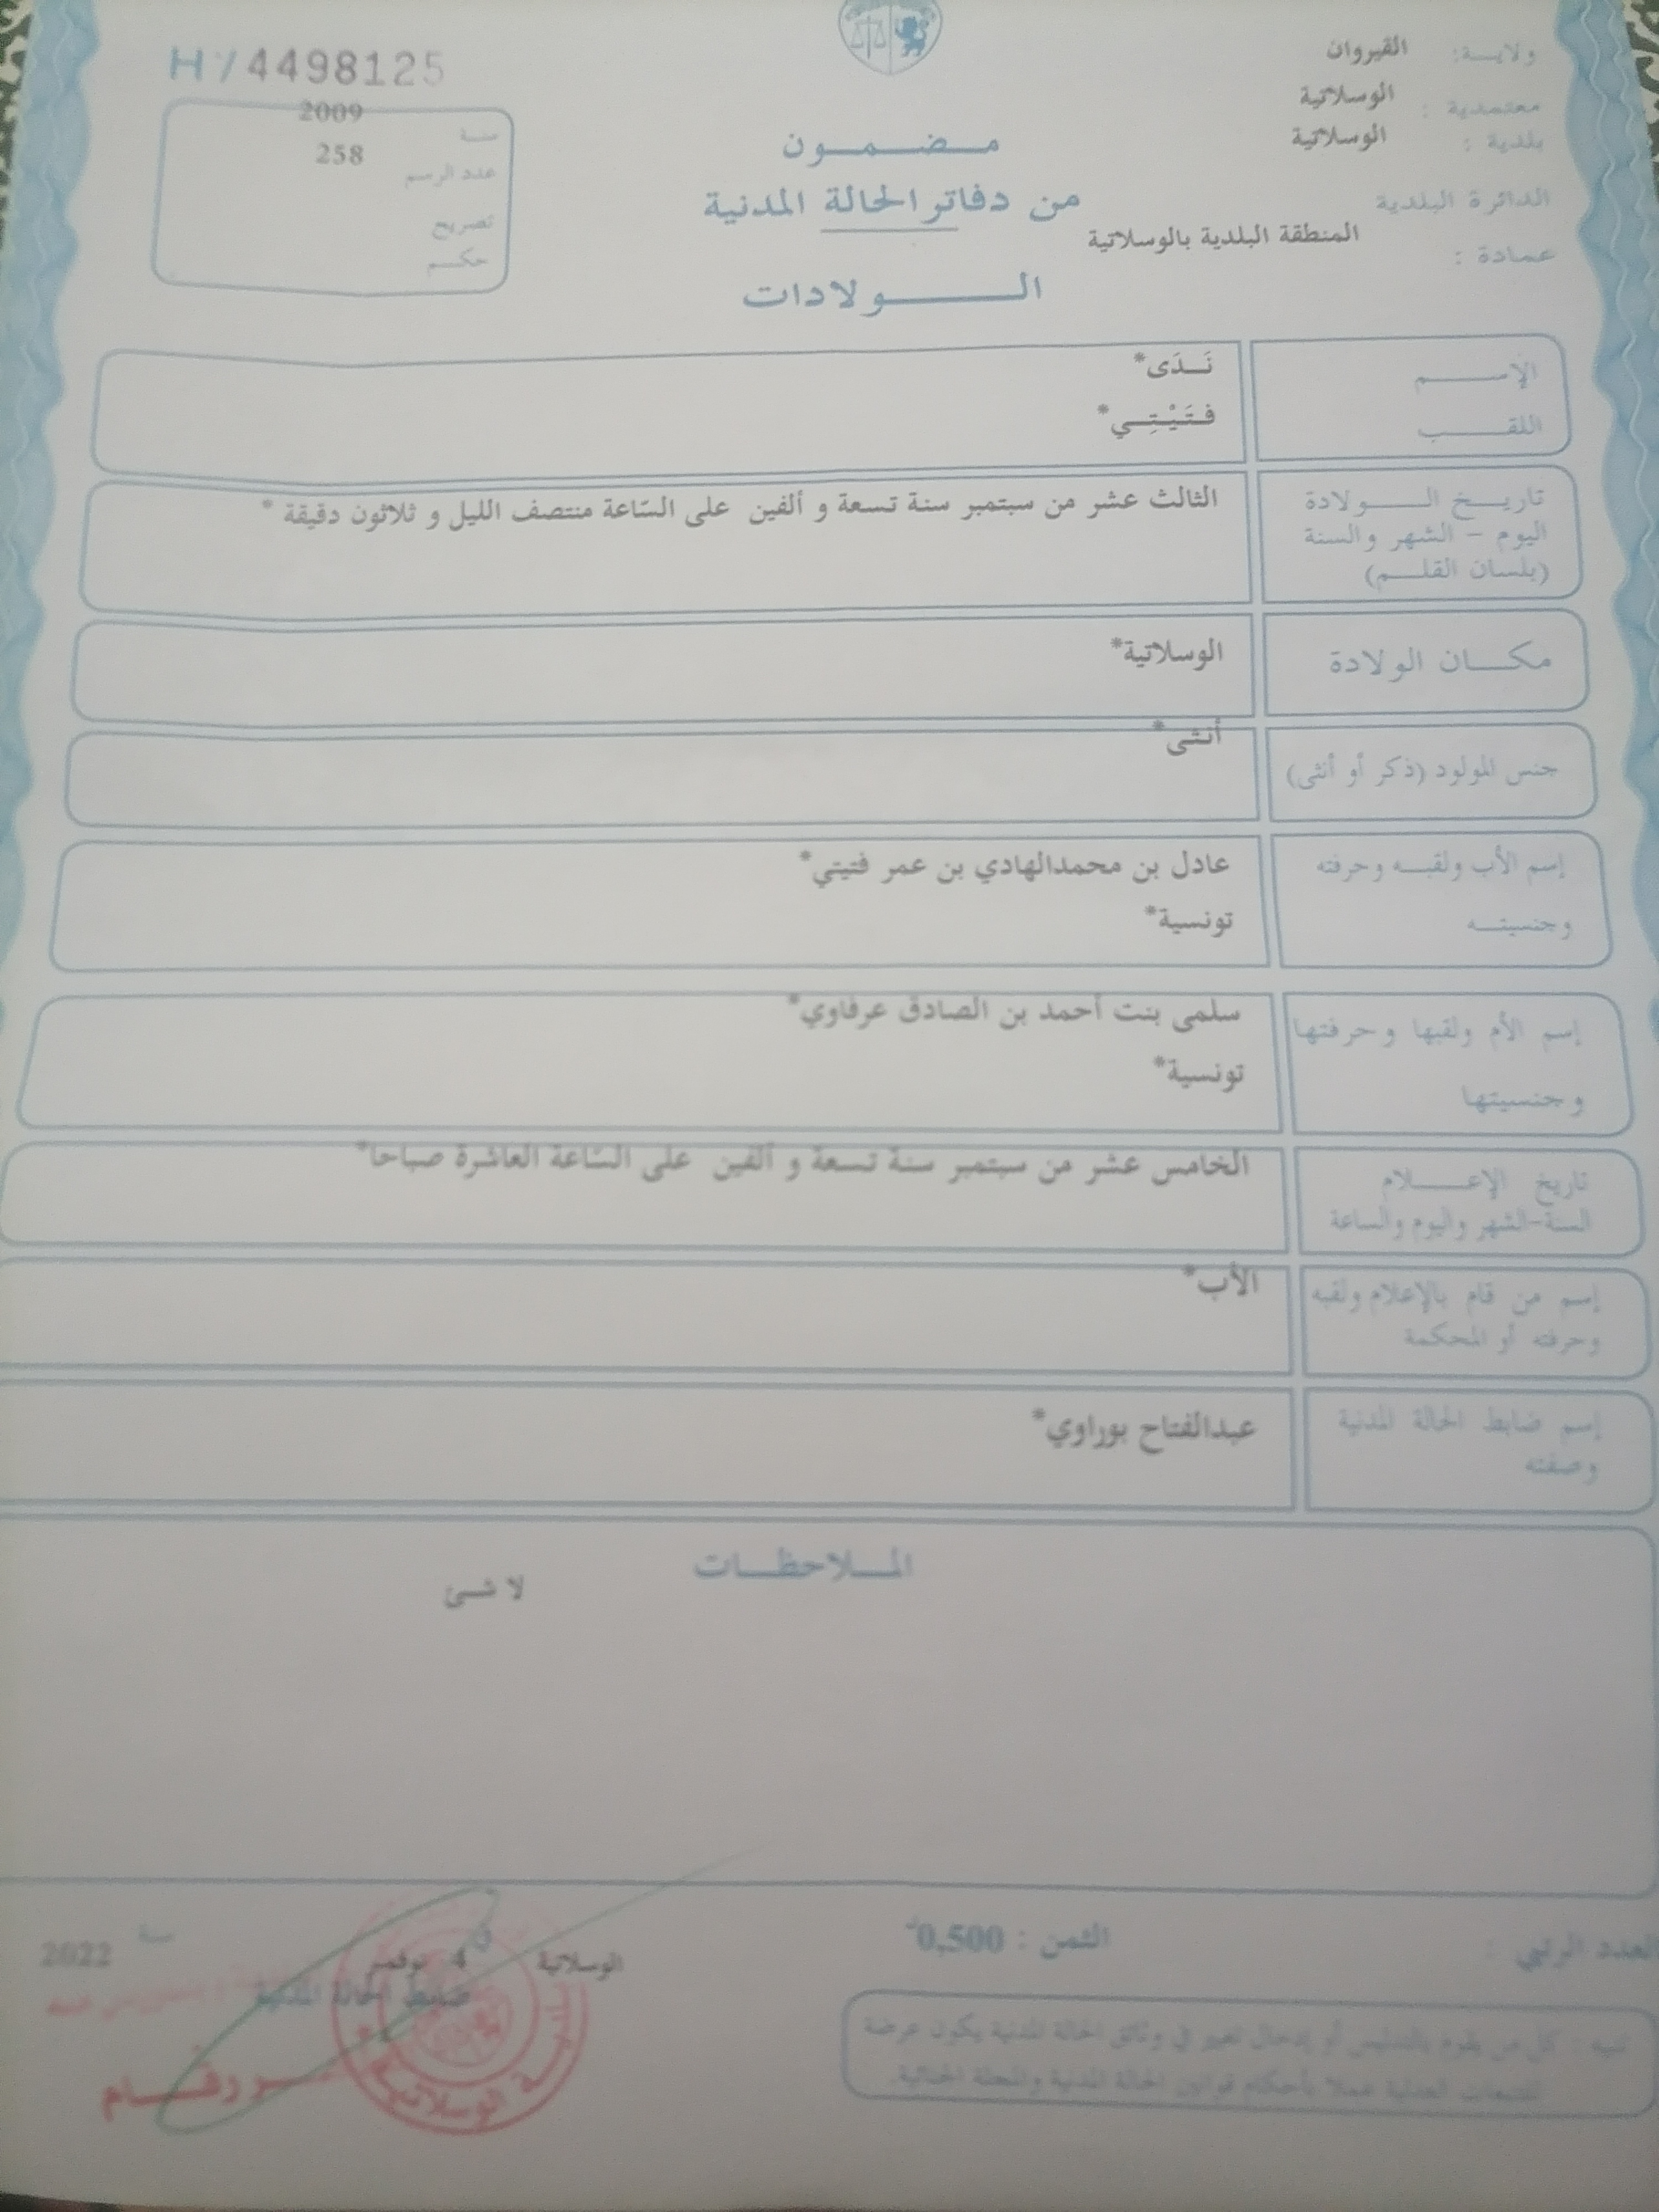 H/4498125
ولايـة: القيروان
معتمدية : الوسلاتية
بلدية : الوسلاتية
الدائرة البلدية
المنطقة البلدية بالوسلاتية
عمادة :
سنة 2009
عدد الرسم 258
تصريح
حكم
مضمون
من دفاتر الحالة المدنية
الولادات
الإسم نَدَى*
اللقب فتَيْتِي*
تاريخ الولادة الثالث عشر من سبتمبر سنة تسعة و ألفين على السّاعة منتصف الليل و ثلاثون دقيقة *
اليوم - الشهر والسنة
(بلسان القلم)
مكان الولادة الوسلاتية*
جنس المولود (ذكر أو أنثى) أنثى*
إسم الأب ولقبه وحرفته عادل بن محمدالهادي بن عمر فتيتي*
وجنسيته تونسية*
إسم الأم ولقبها وحرفتها سلمى بنت أحمد بن الصادق عرفاوي*
وجنسيتها تونسية*
تاريخ الإعلام الخامس عشر من سبتمبر سنة تسعة و ألفين على السّاعة العاشرة صباحا*
السنة-الشهر واليوم والساعة
إسم من قام بالإعلام ولقبه الأب*
وحرفته أو المحكمة
إسم ضابط الحالة المدنية عبدالفتاح بوراوي*
وصفته
الملاحظات
لا شئ
العدد الرتبي :
الثمن : 0,500د
الوسلاتية 4 نوفمبر سنة 2022
ضابط الحالة المدنية
تنبيه : كل من يقوم بالتدليس أو إدخال تغيير في وثائق الحالة المدنية يكون عرضة
للتتبعات العدلية عملا بأحكام قوانين الحالة المدنية والمجلة الجنائية.
الوسلاتية